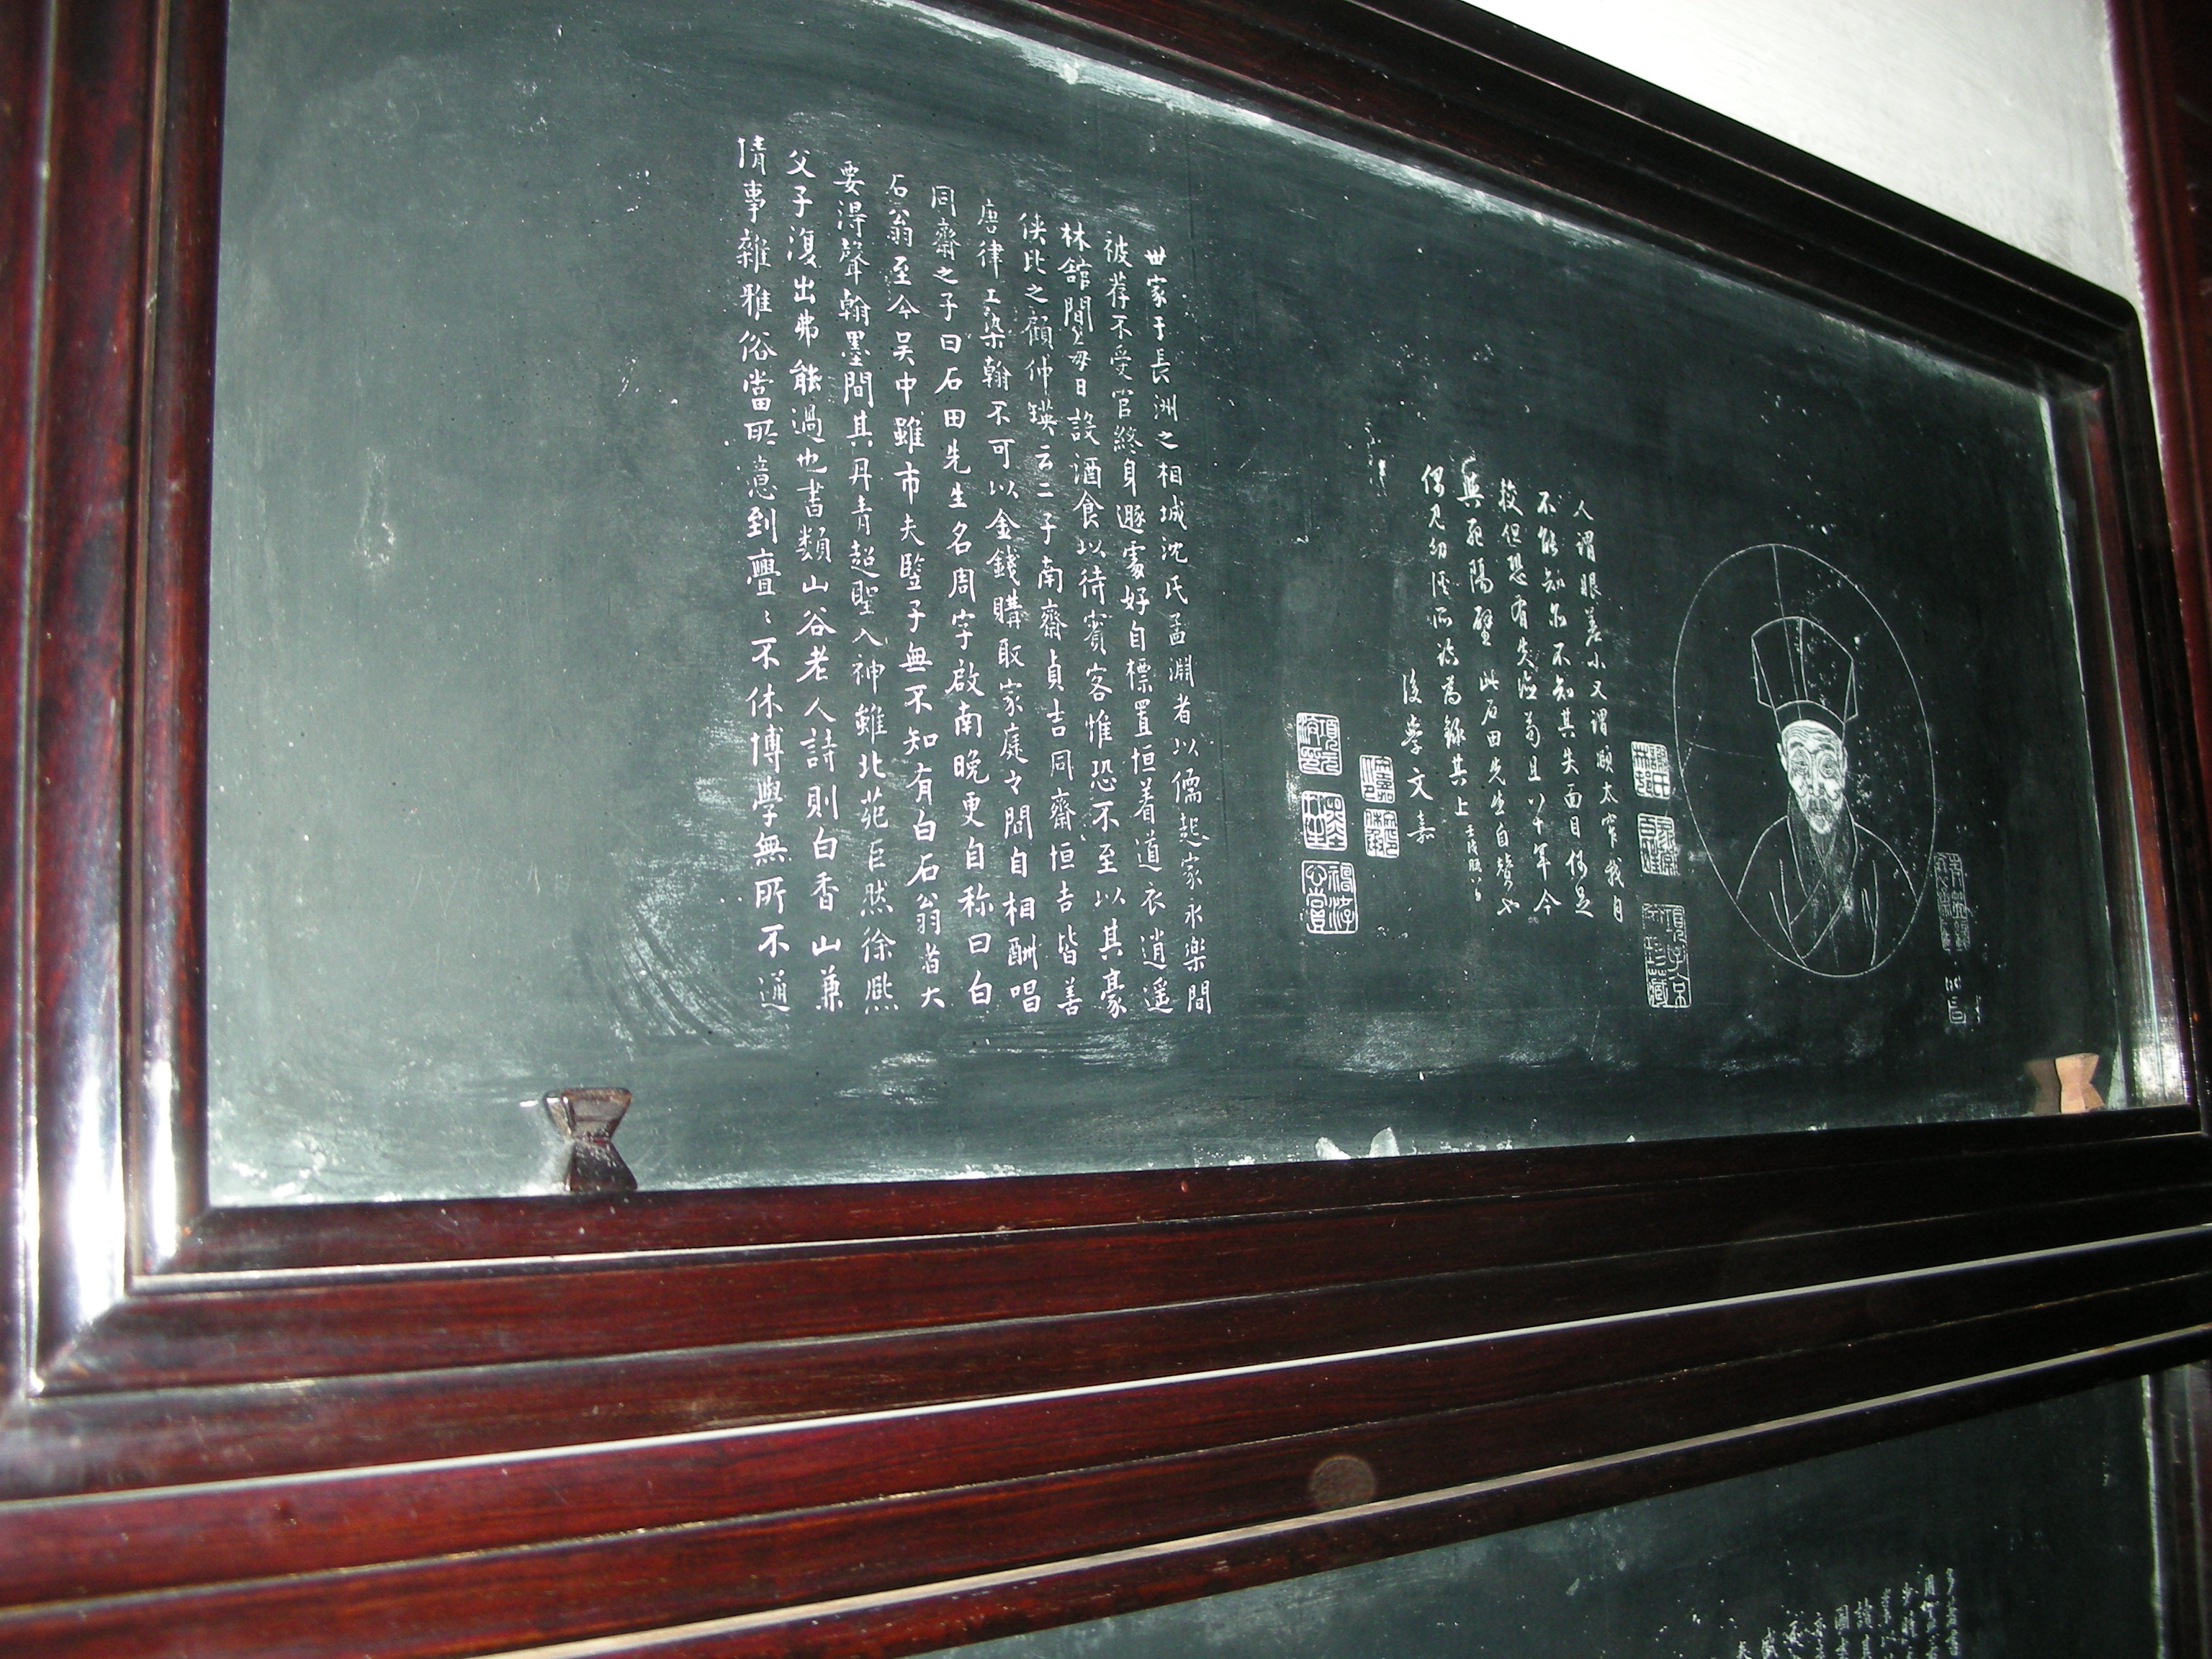 人謂眼差小又謂頤太窄我自
不能知亦不知其失面目何足
較但恐有失德苟且八十年今
與死隔壁 此石田先生自贊也
偶見幼溪所 為錄其上
後學文嘉
世家于長洲之相城沈氏孟淵者以儒起家永樂間
被荐不受官終身遯處好自標置恒着道衣逍遥
林舘間每日設酒食以待賓客惟恐不至以其豪
俠比之顧仲瑛云二子南齋貞吉同齋恒吉皆善
唐律工染翰不可以金錢購取家庭之間自相酬唱
同齋之子曰石田先生名周字啟南晚更自称曰白
石翁至今吴中雖市夫豎子無不知有白石翁者大
要淂聲翰墨間其丹青超聖入神雖北苑巨然徐熙
父子復出弗能過也書類山谷老人詩則白香山兼
情事雜雅俗當所意到亹〻不休博學無所不通